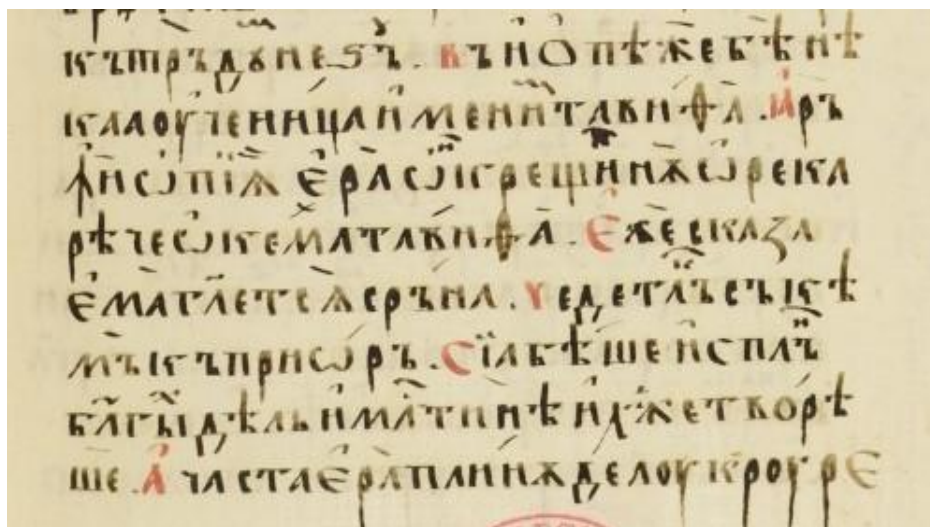 кътръдꙋнеѕъ . въиѻпѣжебѣнѣ
кааоученицаименитавиѳа . ꙗръ
ꙟнѡпїѫ ераѡкрещинѫѡрека
рѣчеѡкематавиѳа . Ежесказа
ематлетсѧсръна . чедетлъсъкѣ
мъкъприѡръ . Сїабѣшеисплъ
благыдѣльимлтинѣихжетворѣ
ше . ачастаераплинѫделоукроуре